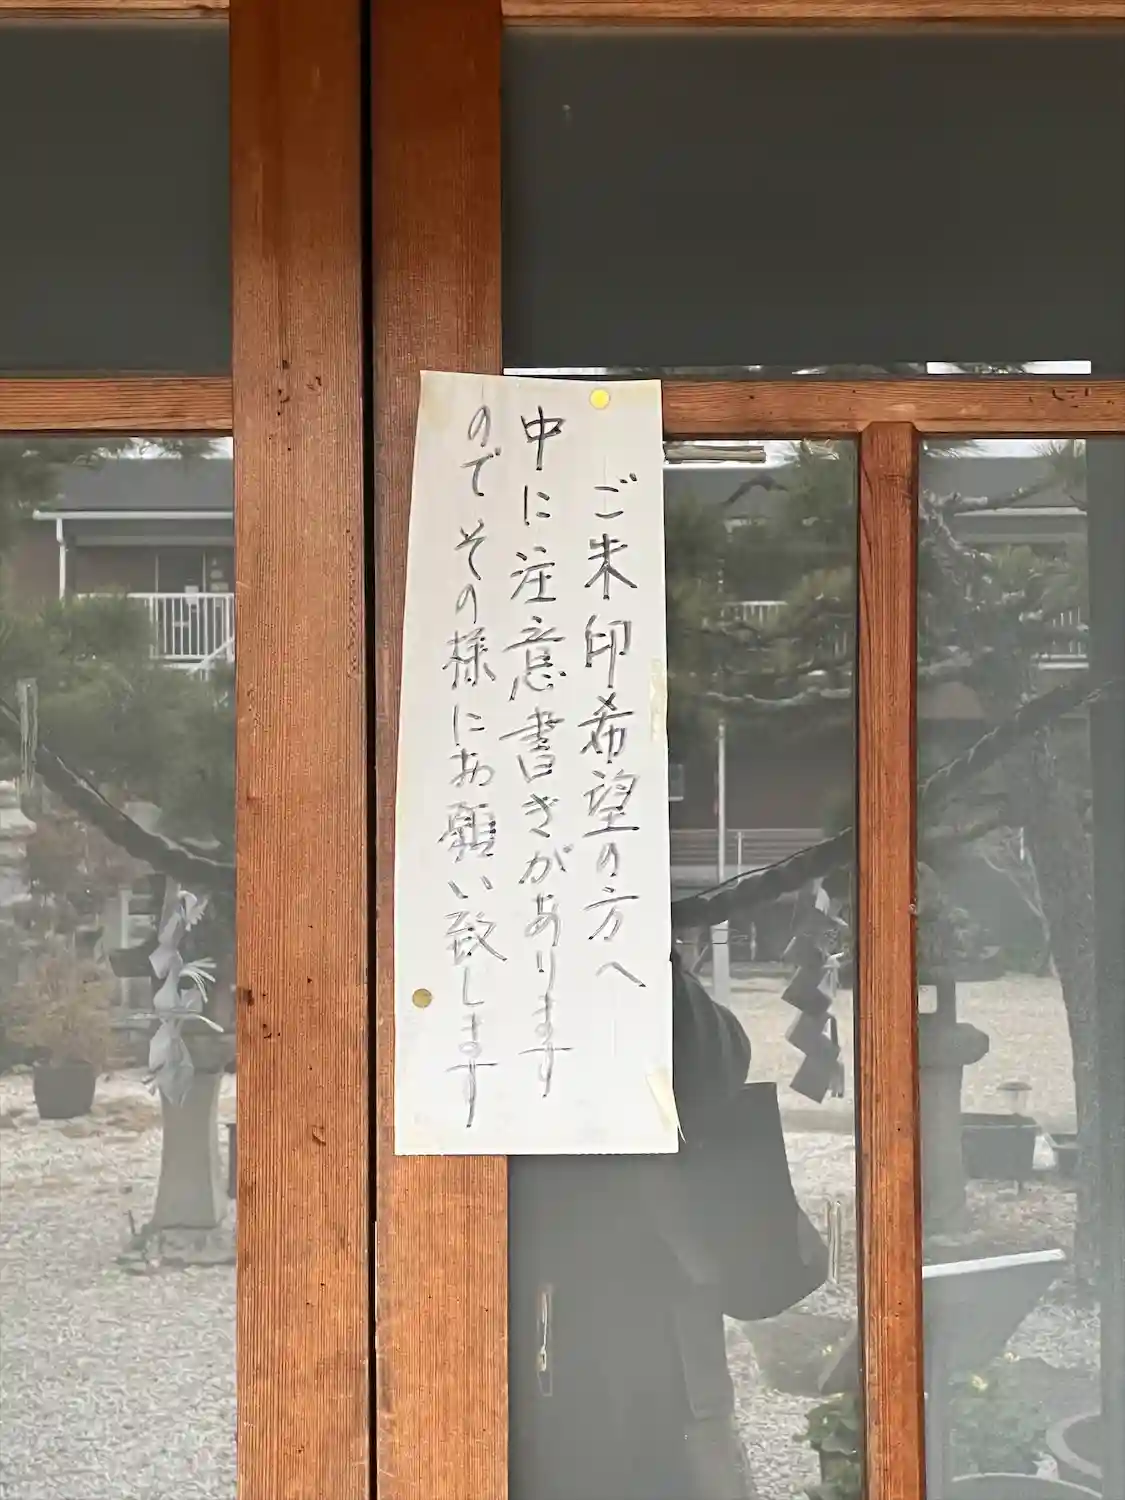 ご朱印希望の方へ
中に注意書きがあります
のでその様にお願い致します